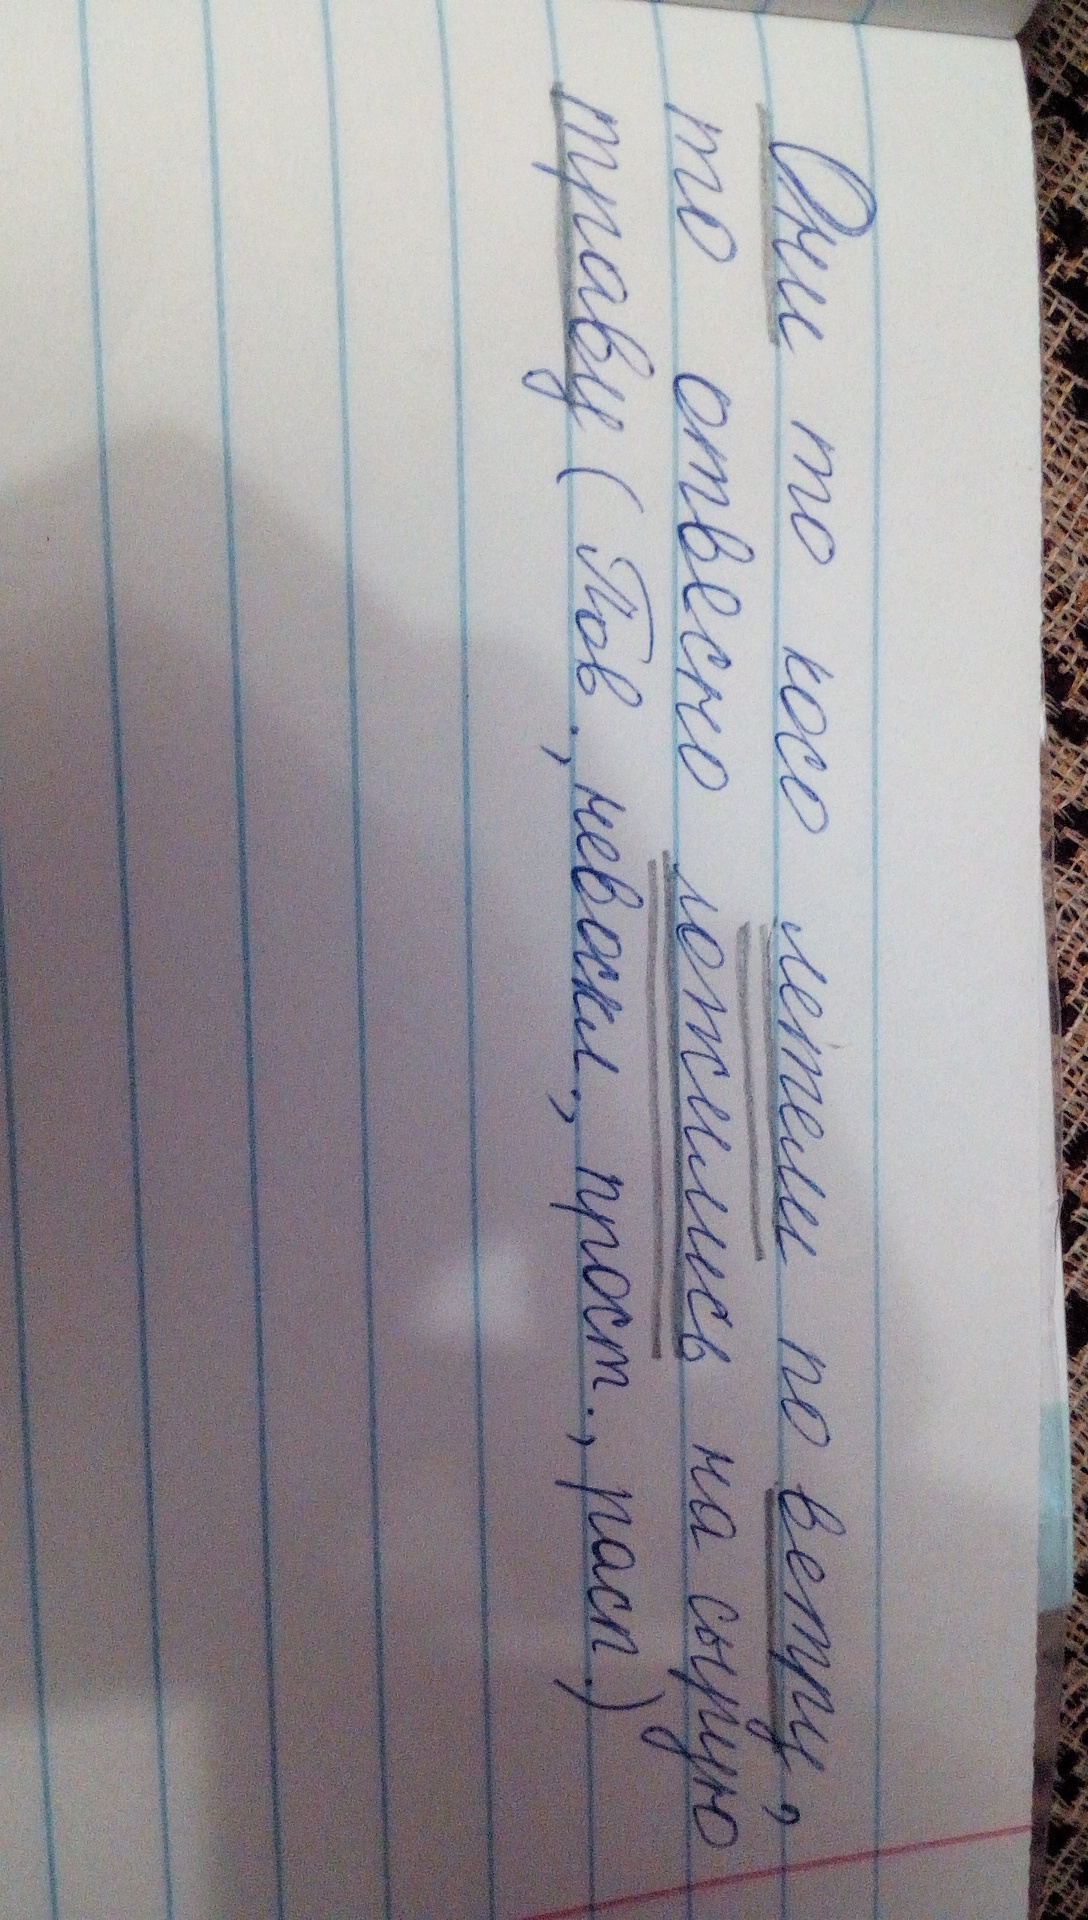 Они то косо летели по ветру,
то отвесно ложились на сырую
траву (Пов., невоскл., прост., расп.)